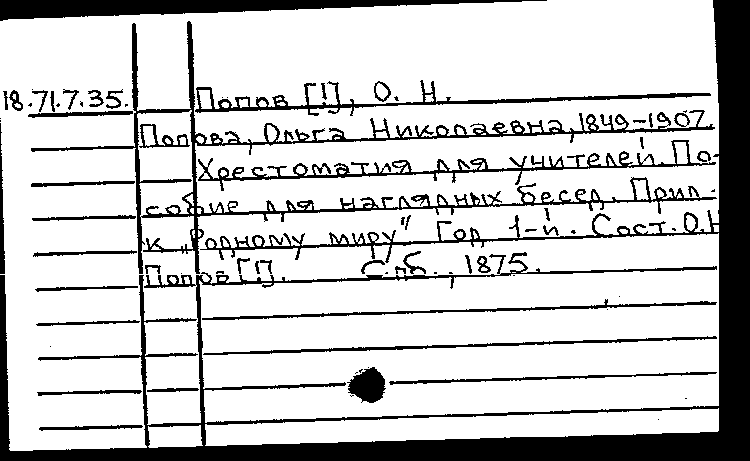 18.71.7.35. Попов [!], О. Н.
Попова, Ольга Николаевна, 1849-1907.
Хрестоматия для учителей. По-
собие для наглядных бесед. Прил.
к „Родному миру" Год 1-й. Сост. О.Н
Попов [!]. С.пб., 1875.